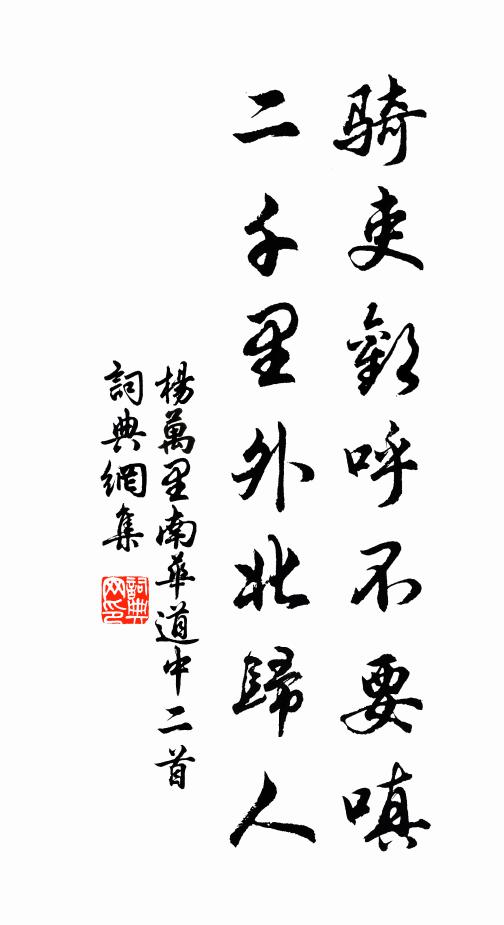 騎吏歡呼不要嗔
二千里外北歸人
楊萬里南華道中二首
詞典網集
詞典網印